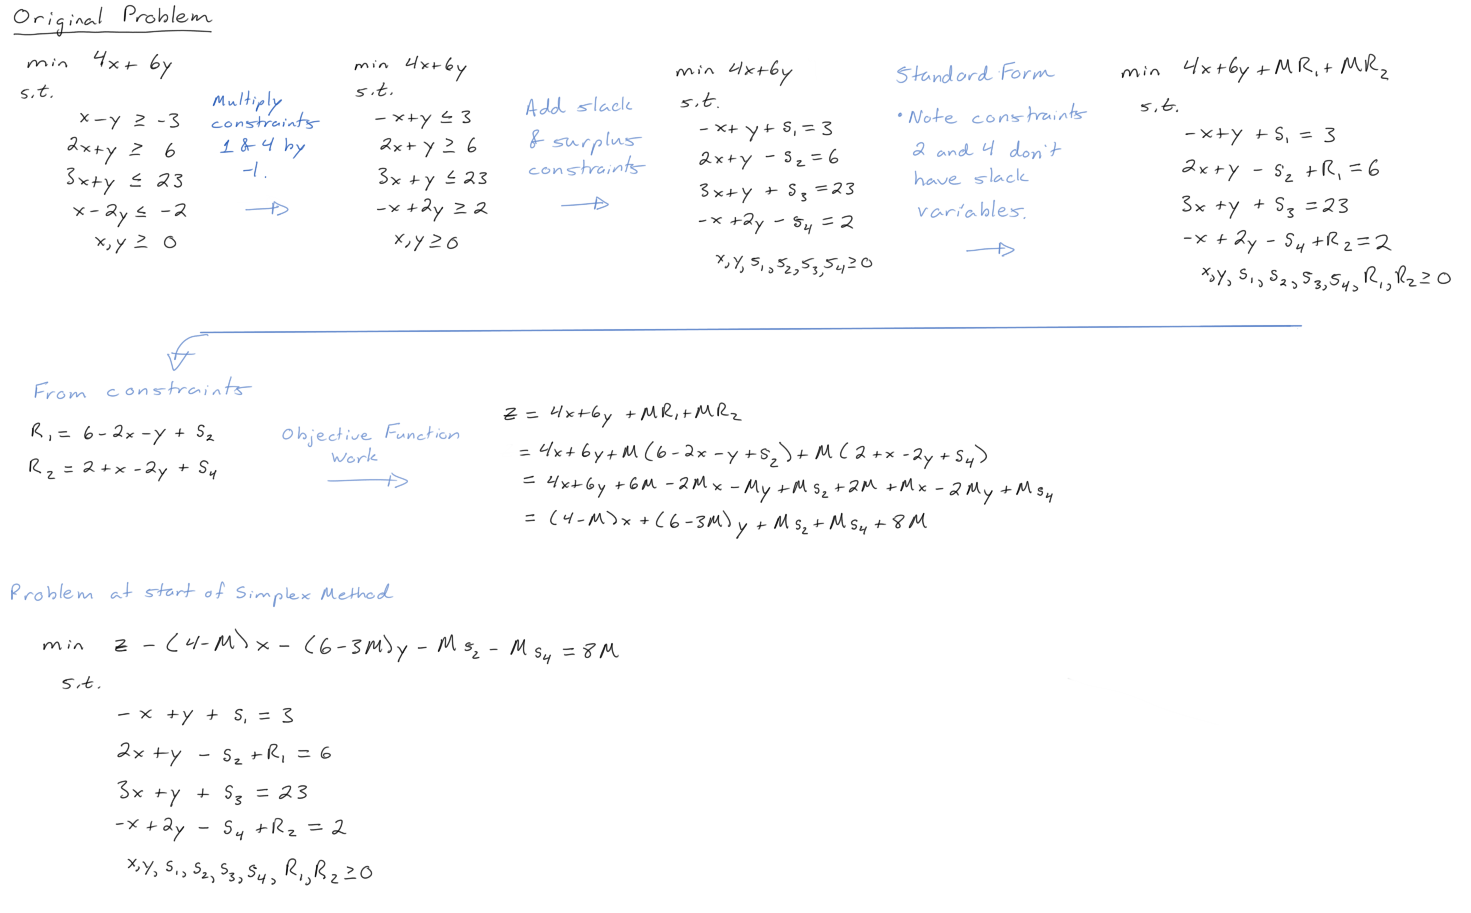 Original Problem
min 4x+6y
s.t.
x-y ≥ -3
2x+y ≥ 6
3x+y ≤ 23
x-2y ≤ -2
x,y ≥ 0
Multiply
constraints
1 & 4 by
-1.
min 4x+6y
s.t.
-x+y ≤ 3
2x+y ≥ 6
3x+y ≤ 23
-x+2y ≥ 2
x,y ≥ 0
Add slack
& surplus
constraints
min 4x+6y
s.t.
-x+y+s₁=3
2x+y-s₂=6
3x+y+s₃=23
-x+2y-s₄=2
x,y,s₁,s₂,s₃,s₄≥0
Standard Form
•Note constraints
2 and 4 don't
have slack
variables.
min 4x+6y+MR₁+MR₂
s.t.
-x+y+s₁=3
2x+y-s₂+R₁=6
3x+y+s₃=23
-x+2y-s₄+R₂=2
x,y,s₁,s₂,s₃,s₄,R₁,R₂≥0
From constraints
R₁=6-2x-y+s₂
R₂=2+x-2y+s₄
Objective Function
Work
z=4x+6y+MR₁+MR₂
=4x+6y+M(6-2x-y+s₂)+M(2+x-2y+s₄)
=4x+6y+6M-2Mx-My+Ms₂+2M+Mx-2My+Ms₄
=(4-M)x+(6-3M)y+Ms₂+Ms₄+8M
Problem at start of Simplex Method
min z-(4-M)x-(6-3M)y-Ms₂-Ms₄=8M
s.t.
-x+y+s₁=3
2x+y-s₂+R₁=6
3x+y+s₃=23
-x+2y-s₄+R₂=2
x,y,s₁,s₂,s₃,s₄,R₁,R₂≥0